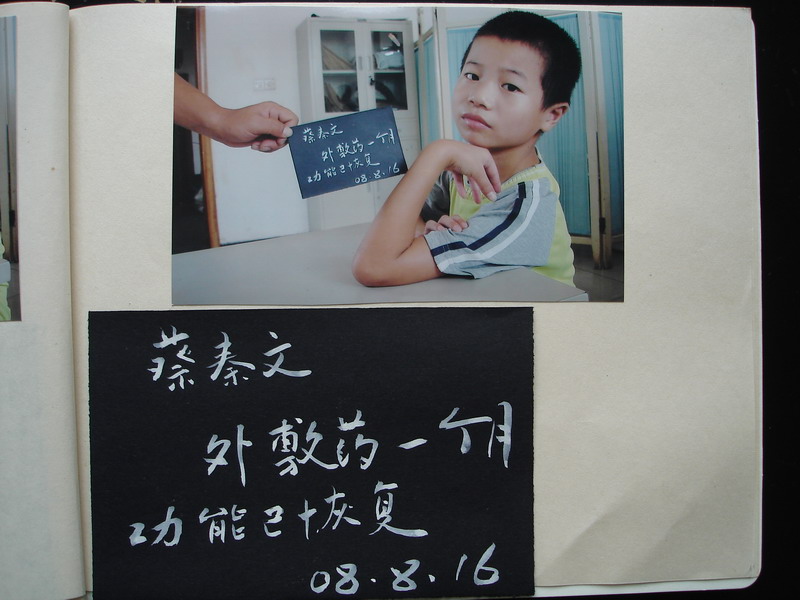 蔡秦文
外敷药一个月
功能已恢复
08.8.16
蔡秦文
外敷药一个月
功能已恢复
08.8.16